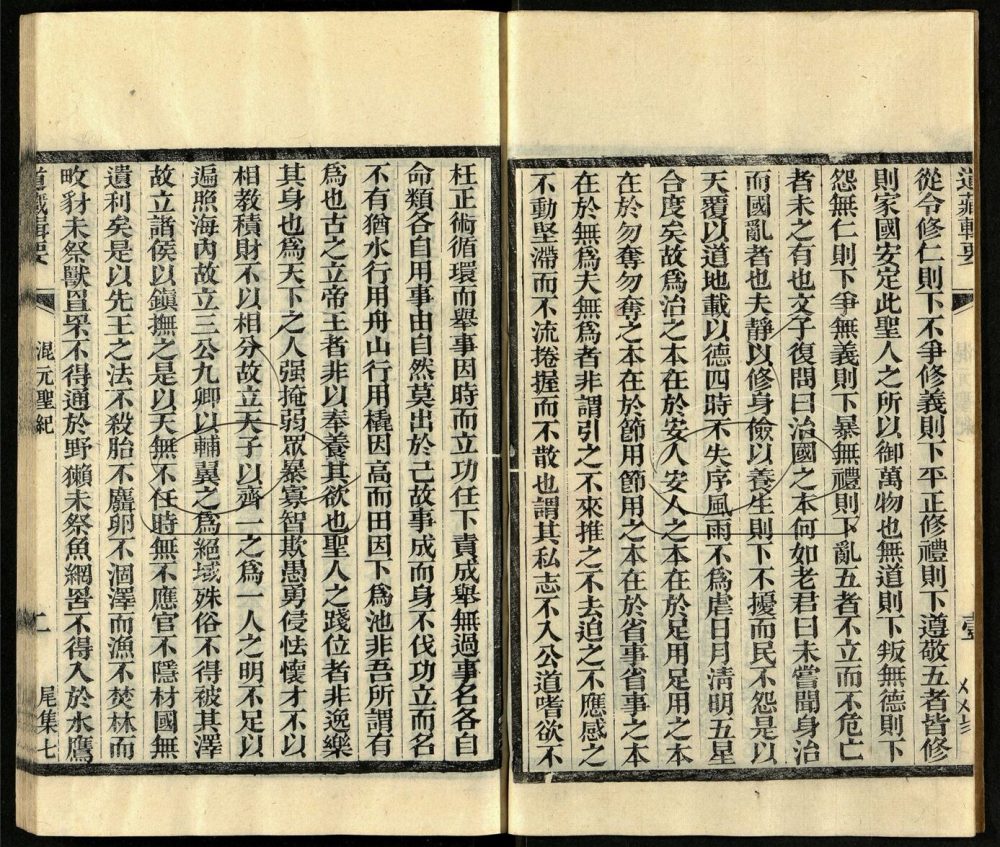 道藏輯要
壹
從令修仁則下不爭修義則下平正修禮則下遵敬五者皆修
則家國安定此聖人之所以御萬物也無道則下叛無德則下
怨無仁則下爭無義則下暴無禮則下亂五者不立而不危亡
者未之有也文子復問曰治國之本何如老君曰未嘗聞身治
而國亂者也夫靜以修身儉以養生則下不擾而民不怨是以
天覆以道地載以德四時不失序風雨不為虐日月清明五星
合度矣故為治之本在於安人安人之本在於足用足用之本
在於勿奪勿奪之本在於節用節用之本在於省事省事之本
在於無為夫無為者非謂引之不來推之不去迫之不應感之
不動堅滯而不流捲握而不散也謂其私志不入公道嗜欲不
枉正術循環而舉事因時而立功任下責成舉無過事名各自
命類各自用事由自然莫出於己故事成而身不伐功立而名
不有猶水行用舟山行用橇因高而田因下為池非吾所謂有
為也古之立帝王者非以奉養其欲也聖人之踐位者非逸樂
其身也為天下之人强掩弱眾暴寡智欺愚勇侵怯懷才不以
相教積財不以相分故立天子以齊一之為一人之明不足以
遍照海內故立三公九卿以輔翼之為絕域殊俗不得被其澤
故立諸侯以鎭撫之是以天無不任時無不應官不隱材國無
遺利矣是以先王之法不殺胎不麛卵不涸澤而漁不焚林而
畋豺未祭獸罝罘不得通於野獺未祭魚網罟不得入於水鷹
道藏輯要
混元聖紀
尾集七